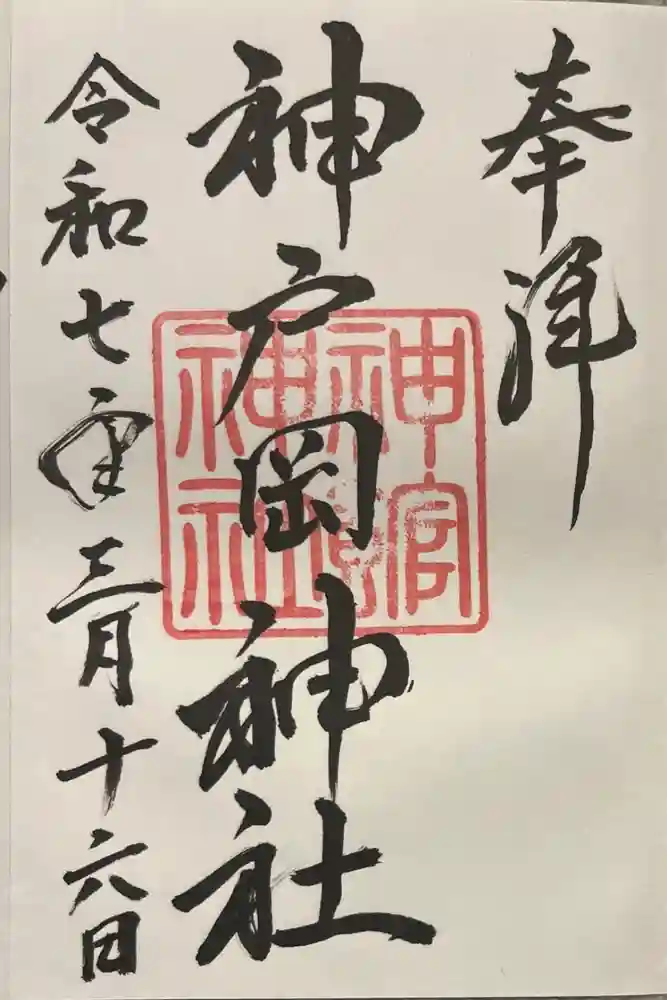 奉拝
神戸岡神社
令和七年三月十六日
神社